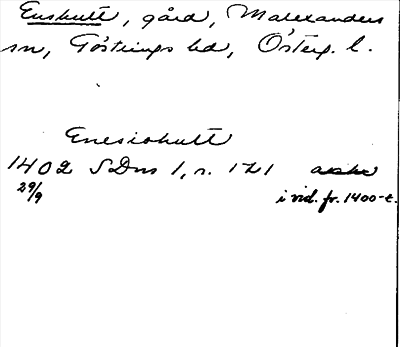 Enshult, gård, Malexanders
sn, Göstrings hd, Österg. l.
Enesiohult
1402 SDns 1, s. 121 avskr
29/9 i vid. fr. 1400-t.